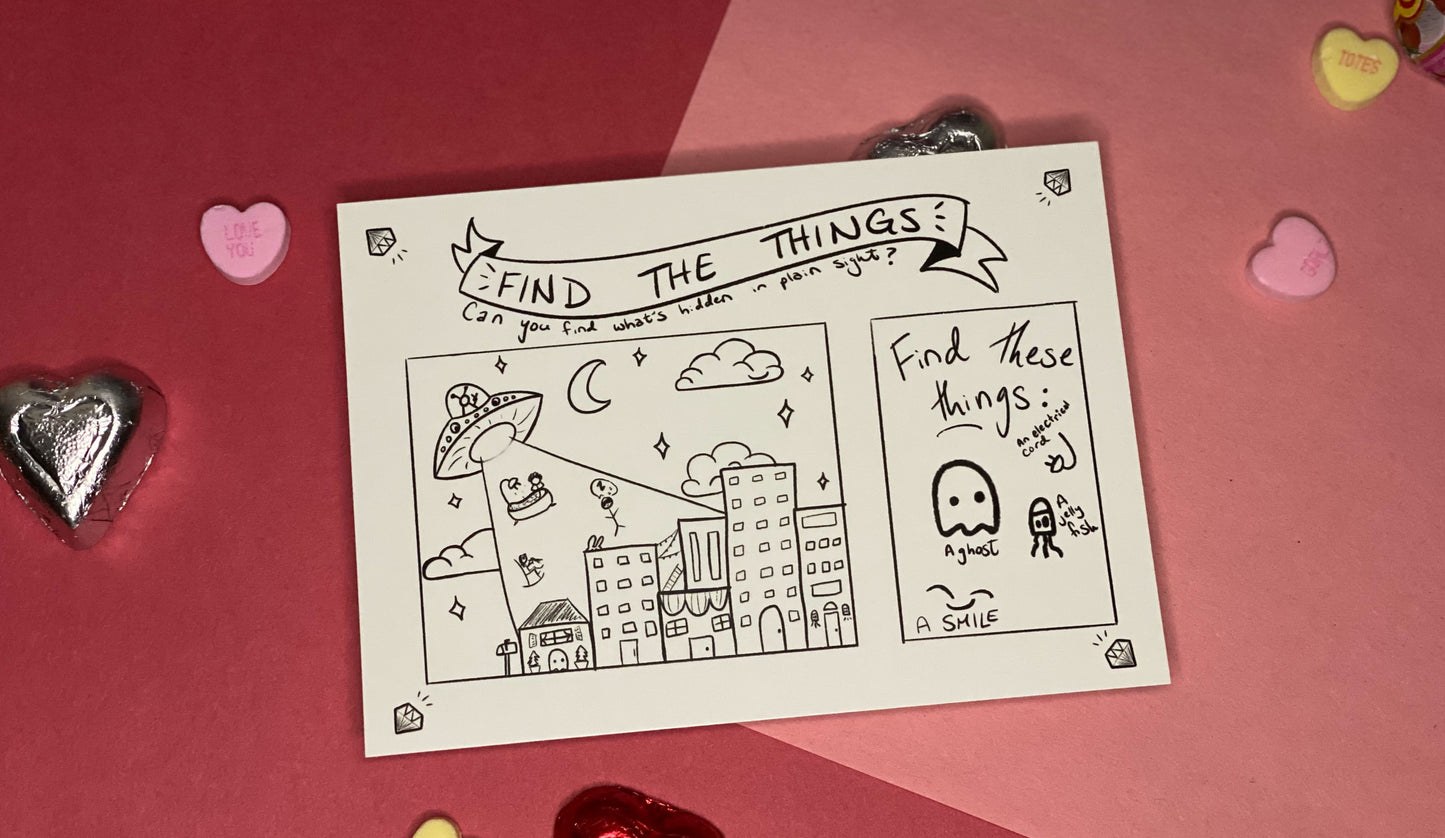 LOVE
YOU
TOTES
FIND THE THINGS
Can you find what's hidden in plain sight?
Find these
things:
An electrical
cord
A ghost
A
jelly
fish
A SMILE